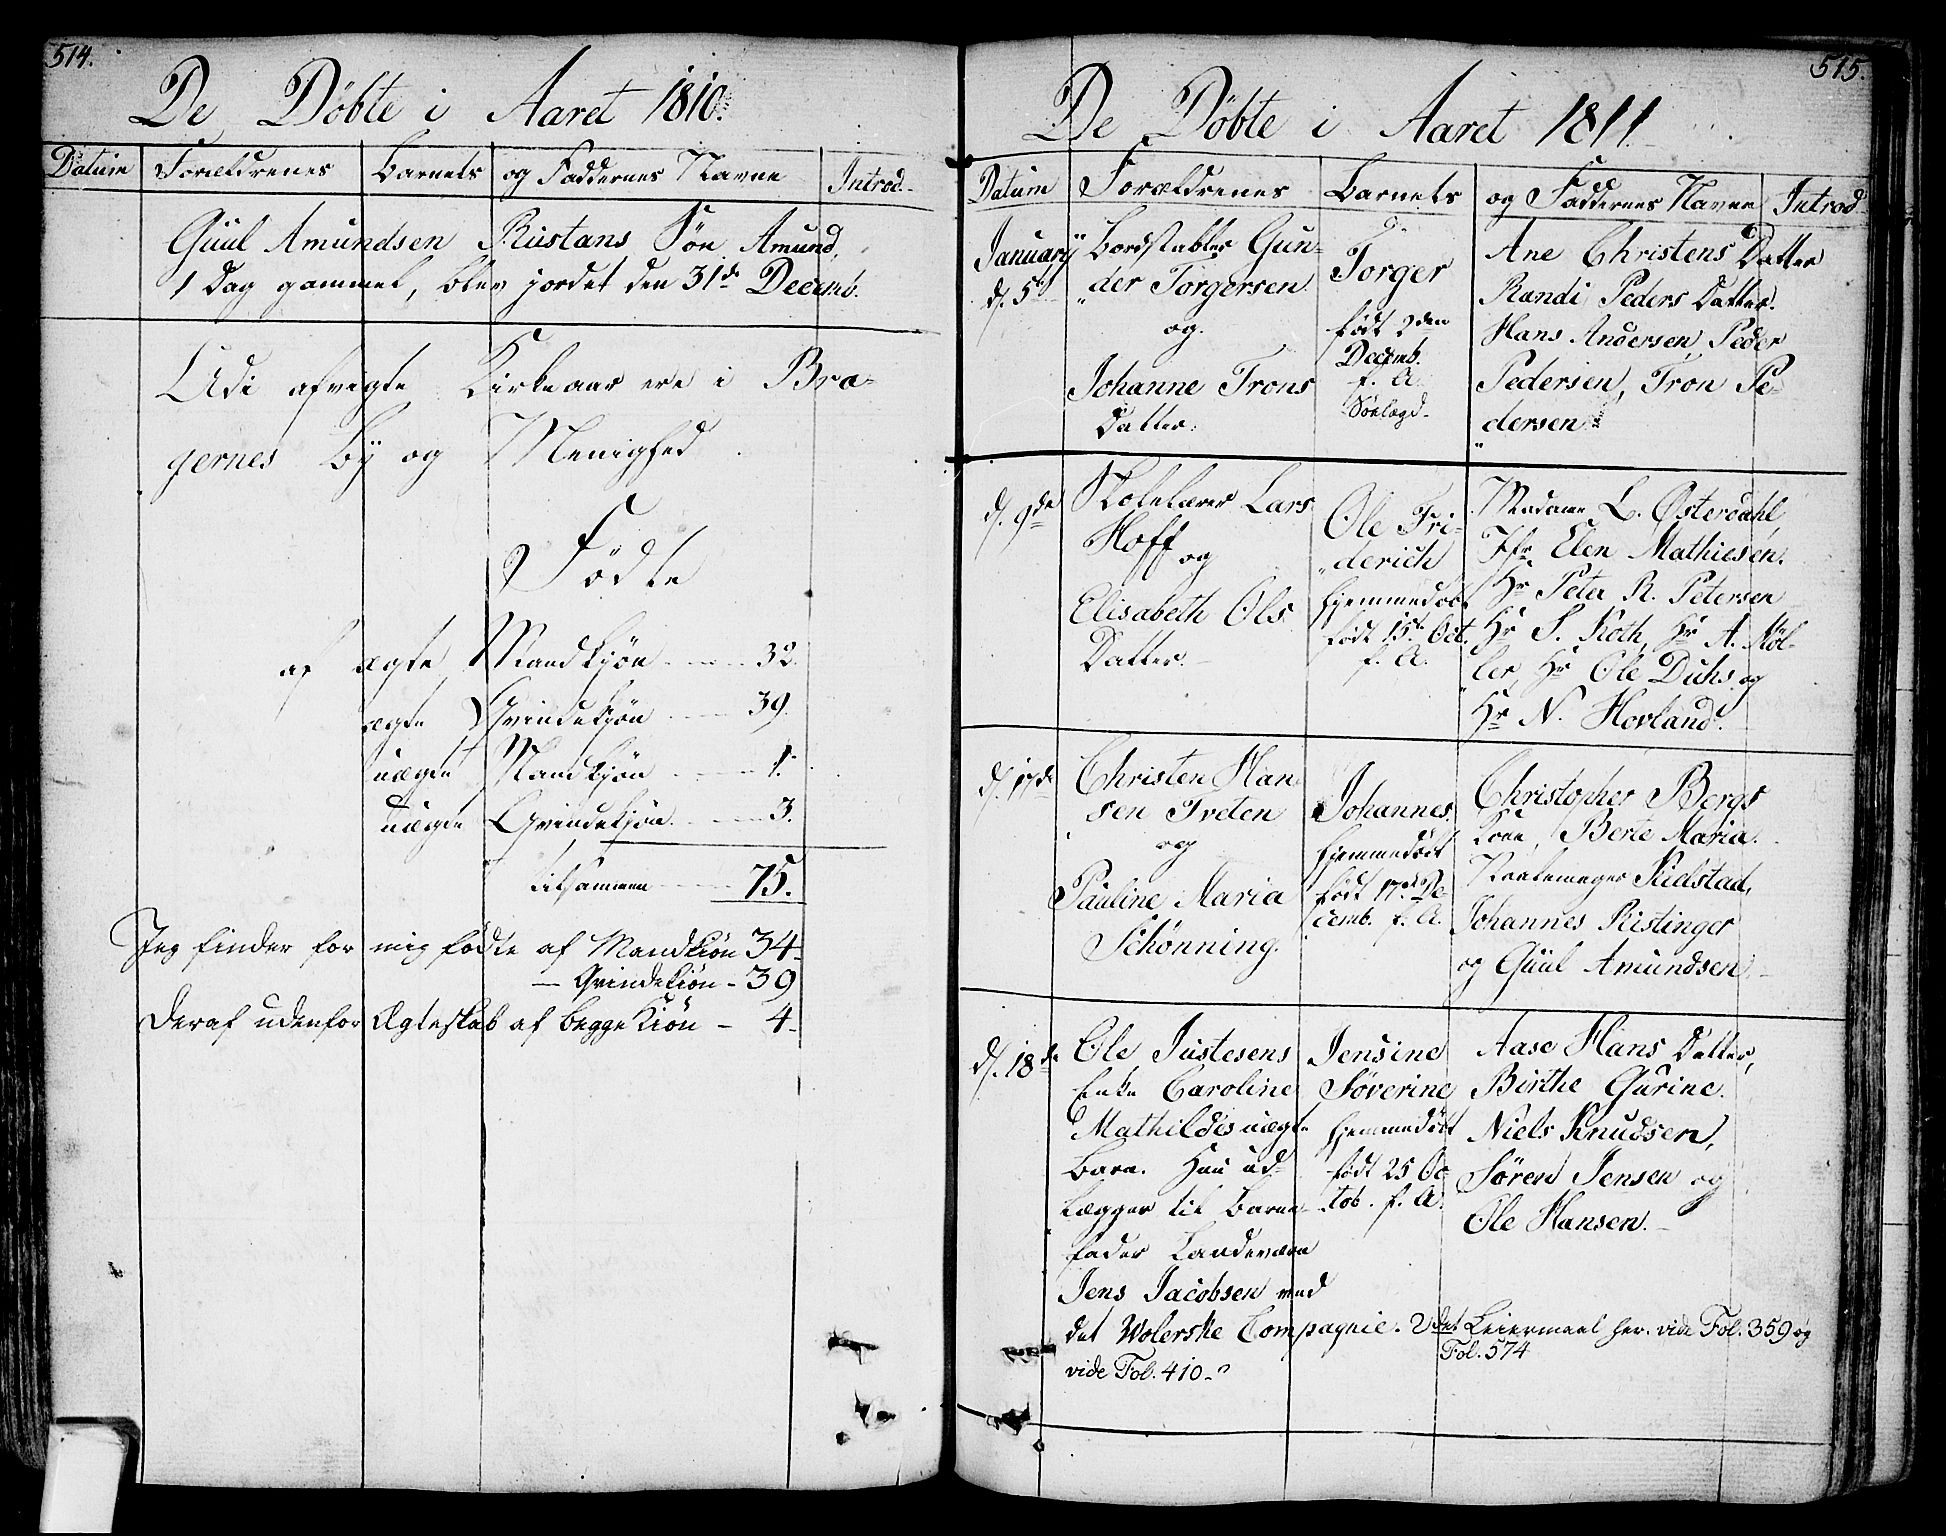 514.
De Döbte i Aaret 1810.
Datum Forældrenes Barnets og Faddernes Navne Introd.
Guul Amundsen Rustans Søn Amund,
1 Dag gammel, blev jordet den 31de Decemb.
Udi afvigte Kirkeaar ere i Bra-
gernes By og Menighed
Födte
af ægte Mandkjön 32.
ægte Qvindekjön 39.
uægte Mandkjön 1.
uægte Qvindekjön 3.
tilsammen 75.
Jeg finder for mig fødte af Mandkiøn 34-
— Qvindekiøn - 39
Deraf udenfor Ægteskab af begge Kiøn - 4-
515.
De Döbte i Aaret 1811.
Datum Forældrenes Barnets og Faddernes Navne Introd
Januarÿ
d. 5te
Bordstabler Gun-
der Torgersen
og
Johanne Trons
Datter.
Torger
født 2den
Decemb.
f. A.
Ane Christens Datter
Randi Peders Datter.
Hans Andersen, Peder
Pedersen, Tron Pe-
dersen
d. 9de
Skolelærer Lars
Hoff og
Elisabeth Ols
Datter.
Ole Fri-
derich
hjemmedöbt
født 15de Oct.
f. A.
Madame L. Østerdahl,
Jfr Elen Mathiesen.
Hr Peter R. Petersen
Hr S. Roth, Hr A. Möl-
ler, Hr Ole Duhs og
Hr N. Hovland.
d. 17de
Christen Han
sen Tveten
og
Pauline Maria
Schönning.
Johannes.
hjemmedöbt
født 17de De-
cemb. f. A.
Christopher Bergs
Kone, Berte Maria.
Kielstad,
Johannes Ristinger
og Guul Amundsen
d. 18de
Ole Justesens
Enke Caroline
Mathildis uægte
Barn. Hun ud-
lægger til Barne-
fader Landeværn
Jens Jacobsen ved
det Wolerske Compagnie. 2det Leiermaal her. vide Fol. 359 og
Fol. 574
vide Fol. 410.
Jensine
Söverine
hjemmedöbt
født 25 Oc
tob. f. A.
Aase Hans Datter,
Birthe Gurine.
Niels Knudsen,
Sören Jensen og
Ole Hansen.